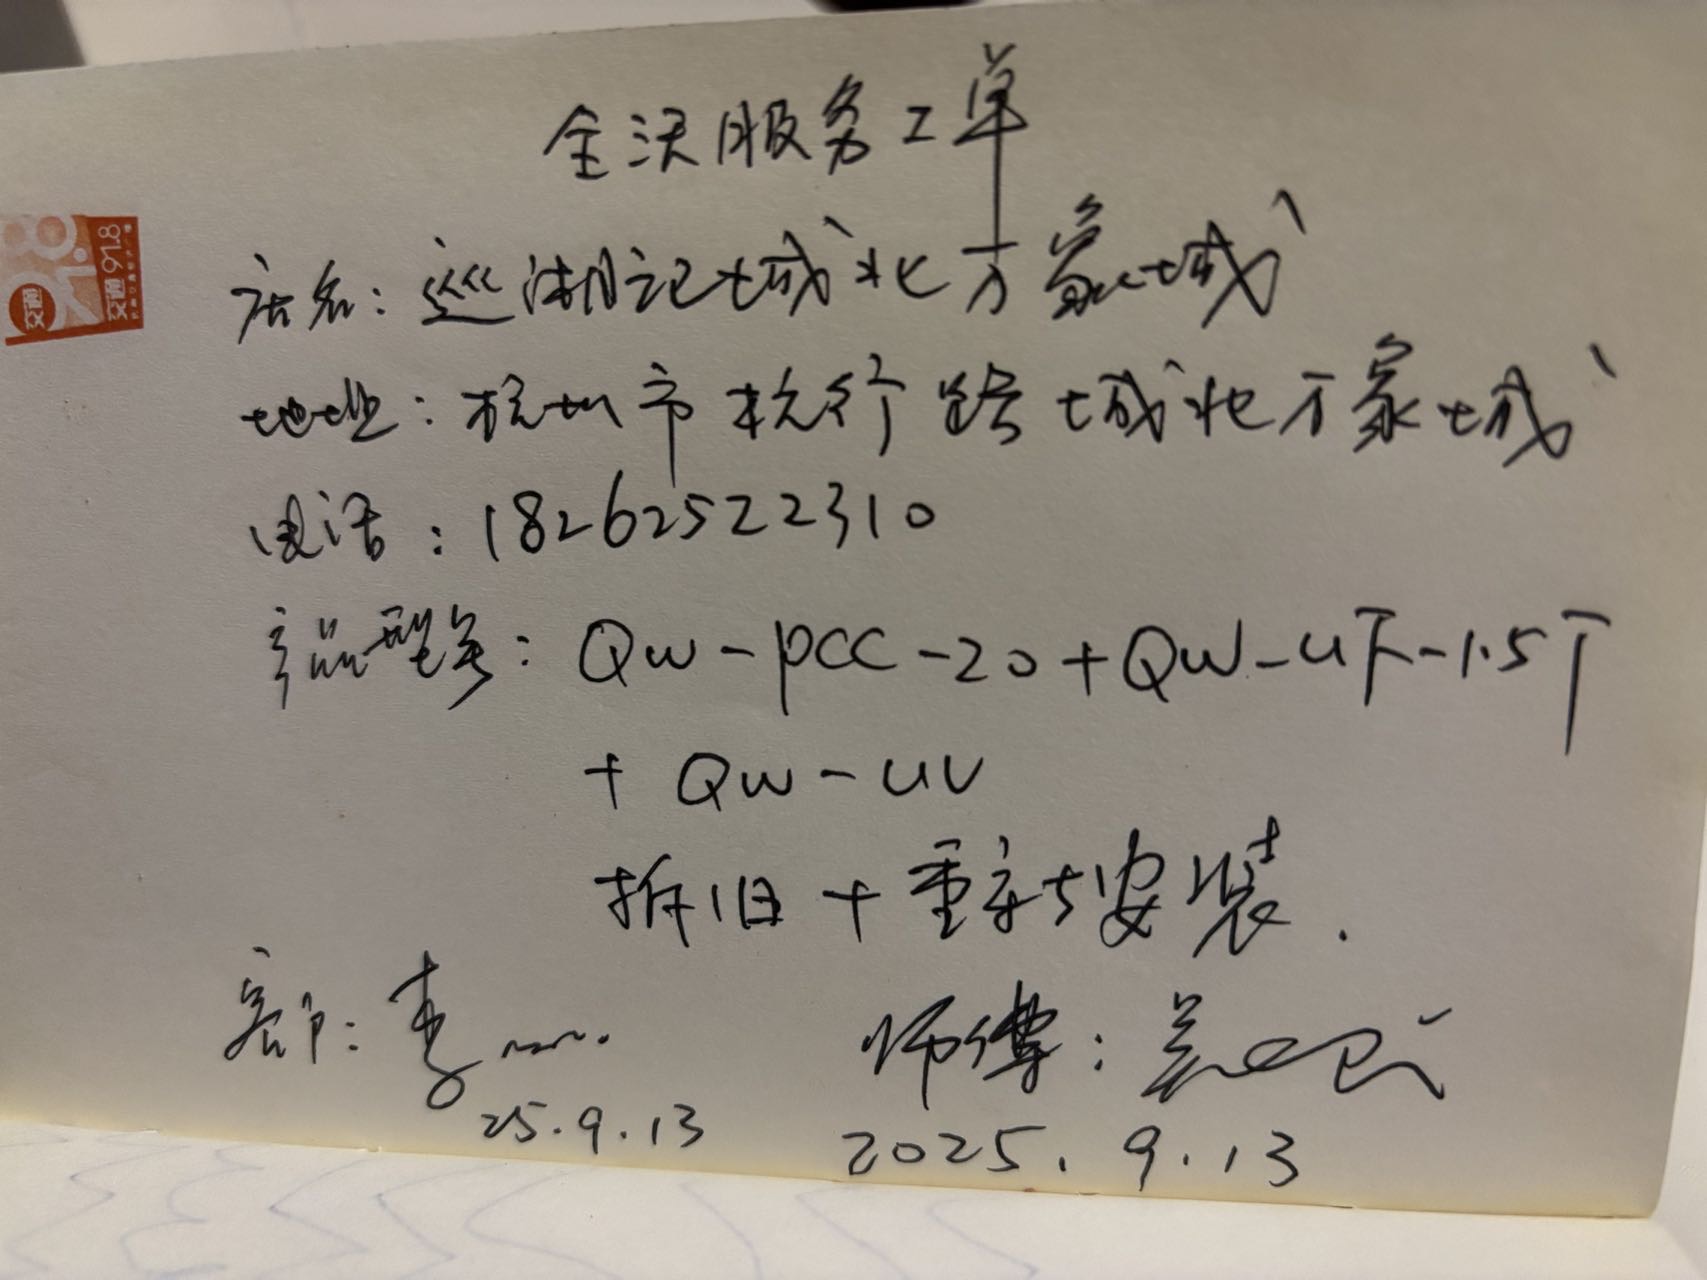 全沃服务工单
91.8
交通
交通 91.8
店名：巡湖记城北万象城
地址：杭州市杭行路城北万象城
电话：18262522310
产品型号：QW-PCC-20+QW-UF-1.5T
+QW-UV
拆旧+重新安装.
客户：李
师傅：姜
25.9.13
2025.9.13